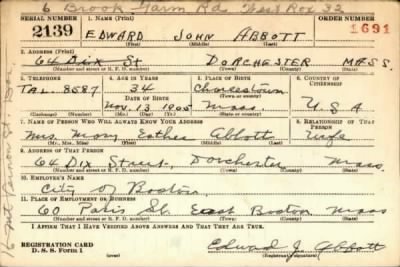 6 Brook Farm Rd West Rox 32
SERIAL NUMBER 1. NAME (Print) ORDER NUMBER
2139 EDWARD JOHN ABBOTT 1691
(First) (Middle) (Last)
2. ADDRESS (Print)
64 DIX St DORCHESTER MASS.
(Number and street or R. F. D. number) (Town) (County) (State)
3. TELEPHONE 4. AGE IN YEARS 5. PLACE OF BIRTH 6. COUNTRY OF CITIZENSHIP
TAL. 8587 34 Charlestown
DATE OF BIRTH (Town or county)
Nov. 13 1905 Mass. U S A
(Exchange) (Number) (Mo.) (Day) (Yr.) (State or country)
7. NAME OF PERSON WHO WILL ALWAYS KNOW YOUR ADDRESS 8. RELATIONSHIP OF THAT PERSON
Mrs. Mary Esther Abbott Wife
(Mr., Mrs., Miss) (First) (Middle) (Last)
9. ADDRESS OF THAT PERSON
64 Dix Street, Dorchester Mass.
(Number and street or R. F. D. number) (Town) (County) (State)
10. EMPLOYER'S NAME
City of Boston
11. PLACE OF EMPLOYMENT OR BUSINESS
60 Paris St. East Boston Mass
(Number and street or R. F. D. number) (Town) (County) (State)
I AFFIRM THAT I HAVE VERIFIED ABOVE ANSWERS AND THAT THEY ARE TRUE.
REGISTRATION CARD
D. S. S. Form 1 Edward J. Abbott
(Registrant's signature)